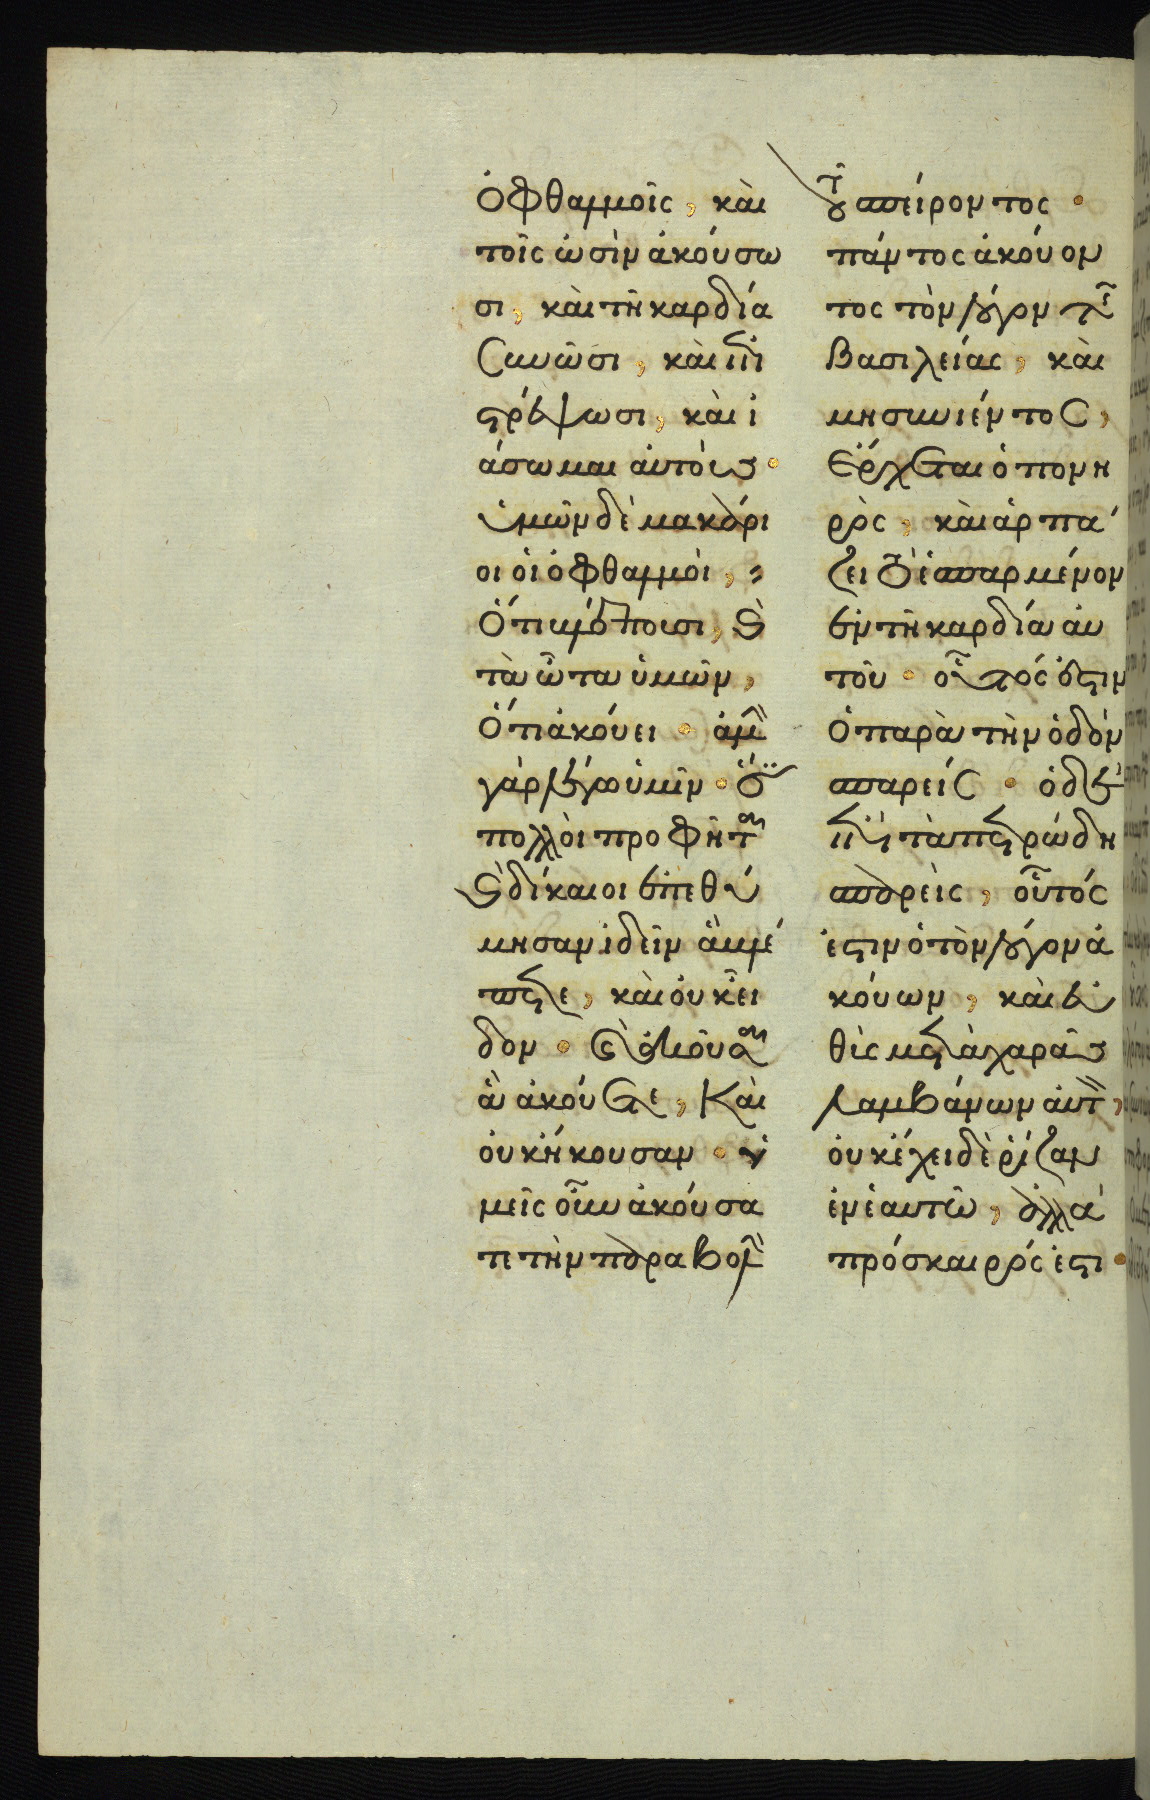 ὀφθαλμοῖς, καὶ
τοῖς ὠσὶν ἀκούσω
σι, καὶ τῆ καρδία
συνῶσι, καὶ ἐπι
στρέψωσι, καὶ ἰ
άσωμαι αὐτούς.
ὑμῶν δὲ μακάρι
οι οἱ ὀφθαλμοὶ,
ὅτι βλέπουσι, καὶ
τὰ ὦτα ὑμῶν,
ὅτι ἀκούει. ἀμὴν
γὰρ λέγω ὑμῖν. ὅτι
πολλοὶ προφῆται
καὶ δίκαιοι ἐπεθύ
μησαν ἰδεῖν ἃ βλέ
πετε, καὶ οὐκ εἶ
δον. καὶ ἀκοῦσαι
ἃ ἀκούετε, καὶ
οὐκ ἤκουσαν. ὑ
μεῖς οὖν ἀκούσα
τε τὴν παραβολὴν
τοῦ σπείροντος.
πάντος ἀκούον
τος τὸν λόγον τῆς
βασιλείας, καὶ
μὴ συνιέντος,
ἔρχεται ὁ πονη
ρὸς, καὶ ἁρπά
ζει τὸ ἐσπαρμένον
ἐν τῆ καρδία αὐ
τοῦ. οὗτός ἐστιν
ὁ παρὰ τὴν ὁδὸν
σπαρείς. ὁ δὲ
ἐπὶ τὰ πετρώδη
σπαρεὶς, οὗτός
ἐστιν ὁ τὸν λόγον ἀ
κούων, καὶ εὐ
θὺς μετὰ χαρᾶς
λαμβάνων αὐτὸν,
οὐκ ἔχει δὲ ῥίζαν
ἐν ἑαυτῶ, ἀλλὰ
πρόσκαιρός ἐστι.